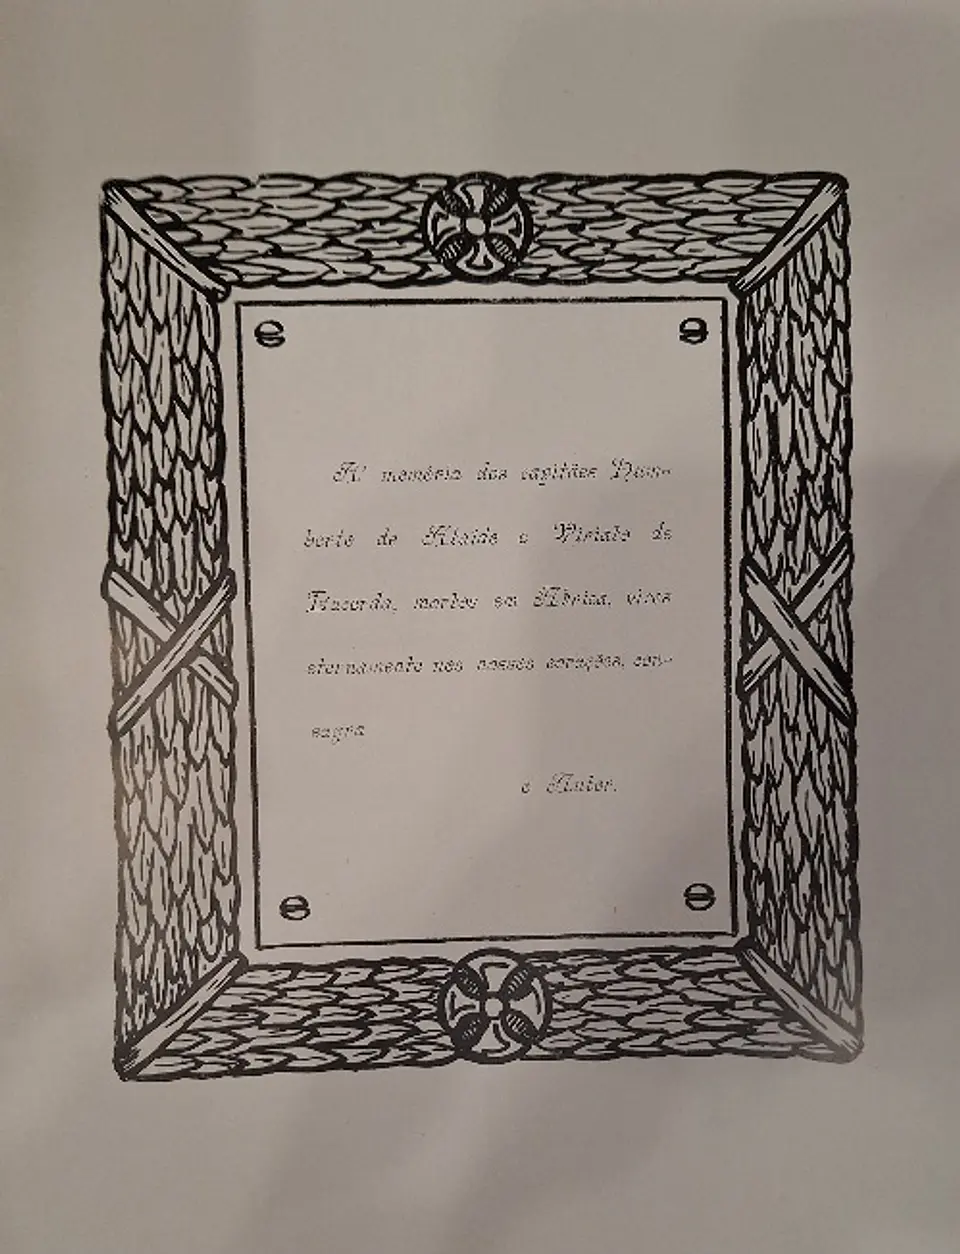 A' memória dos capitães Hum-
berto de Ataíde e Viriato de
Lacerda, mortos em África, vivos
eternamente nos nossos corações, con-
sagra
o Autor.